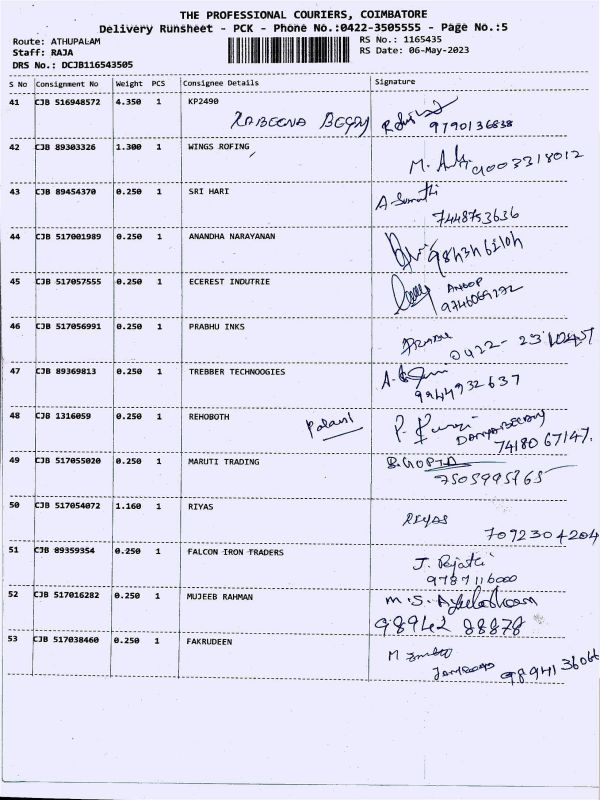 THE PROFESSIONAL COURIERS, COIMBATORE
Delivery Runsheet - PCK - Phone No.:0422-3505555 - Page No.:5
Route: ATHUPALAM RS No.: 1165435
Staff: RAJA RS Date: 06-May-2023
DRS No.: DCJB116543505
S No Consignment No Weight PCS Consignee Details Signature
41 CJB 516948572 4.350 1 KP2490
9790136838
42 CJB 89303326 1.300 1 WINGS ROFING
M. 9003318012
43 CJB 89454370 0.250 1 SRI HARI
A. Sumathi
7448753636
44 CJB 517001989 0.250 1 ANANDHA NARAYANAN
45 CJB 517057555 0.250 1 ECEREST INDUTRIE
ANOOP
46 CJB 517056991 0.250 1 PRABHU INKS
47 CJB 89369813 0.250 1 TREBBER TECHNOOGIES
9944932637
48 CJB 1316059 0.250 1 REHOBOTH
Palani P.
74180 67147.
49 CJB 517055020 0.250 1 MARUTI TRADING
B. GOPTA
50 CJB 517054072 1.160 1 RIYAS
RIYAS
7092304204
51 CJB 89359354 0.250 1 FALCON IRON TRADERS
J.
9787116000
52 CJB 517016282 0.250 1 MUJEEB RAHMAN
M.S.
98942 88878
53 CJB 517038460 0.250 1 FAKRUDEEN
M